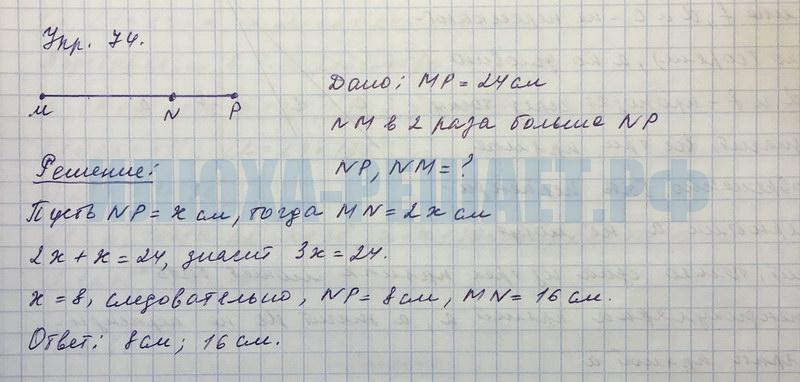 Упр. 74.
M N P
Дано: MP = 24 см
NM в 2 раза больше NP
NP, NM = ?
Решение:
Пусть NP = x см, тогда MN = 2x см
2x + x = 24, значит 3x = 24.
x = 8, следовательно, NP = 8 см, MN = 16 см.
Ответ: 8 см; 16 см.